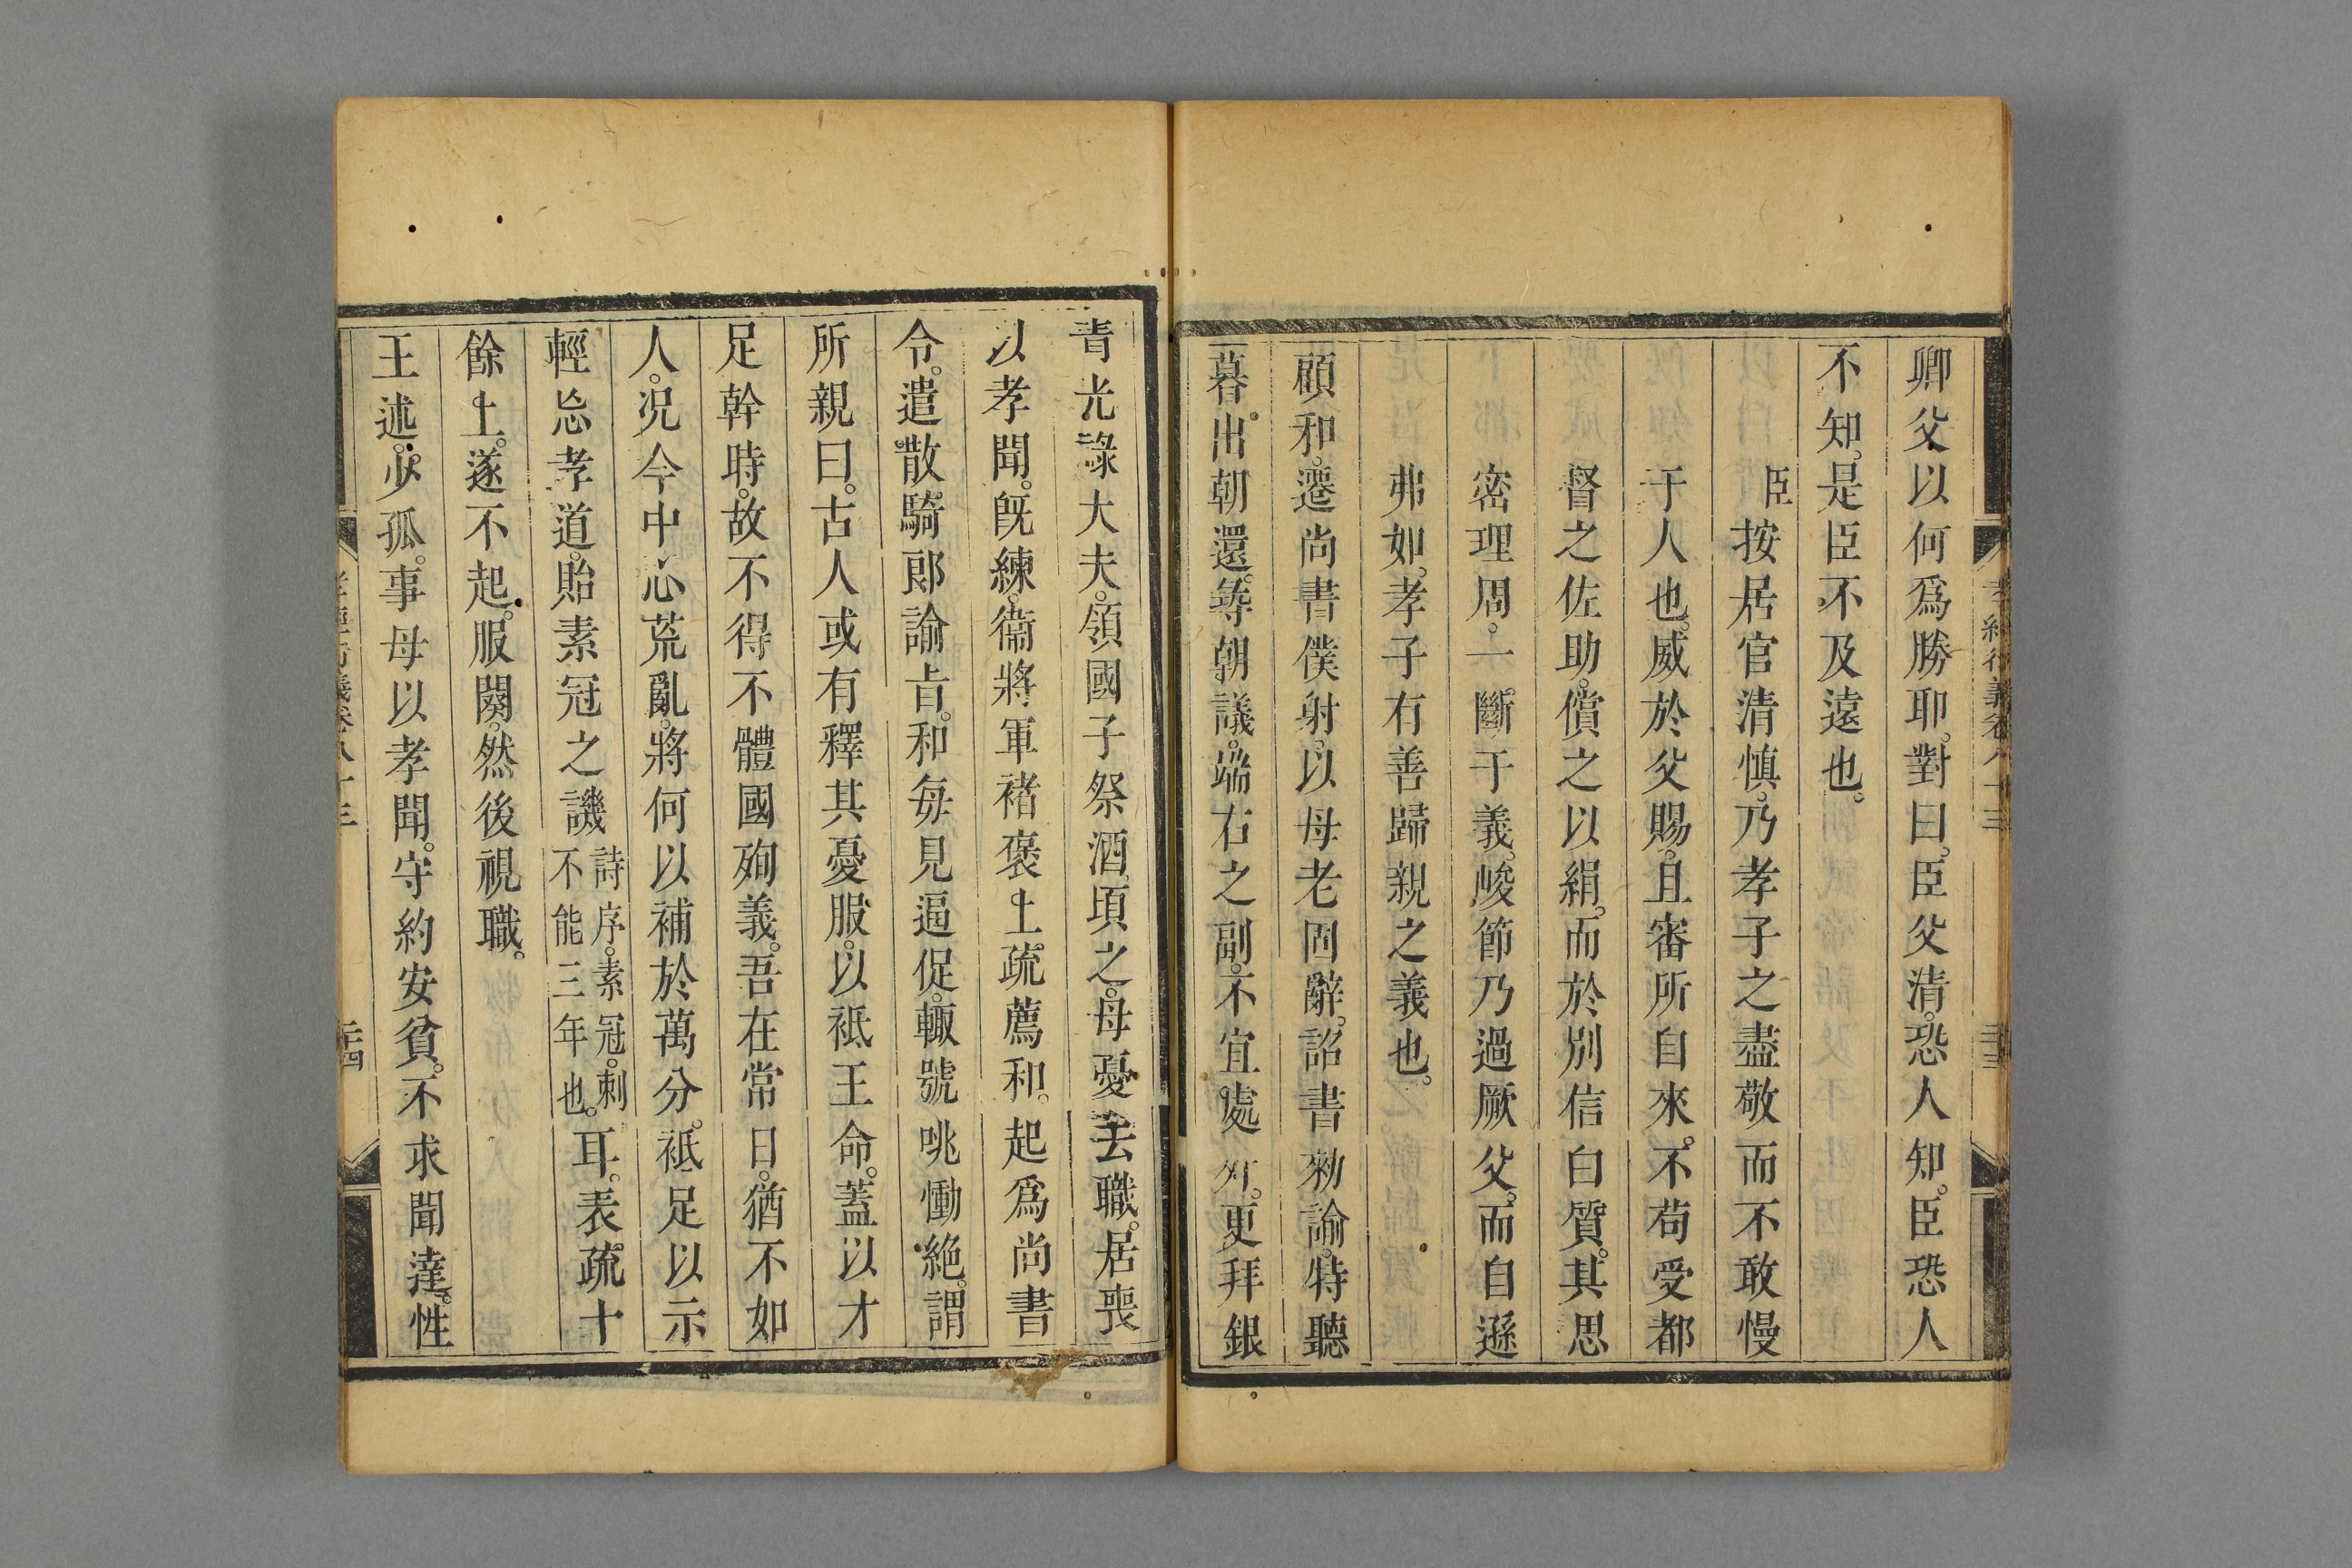 卿父以何爲勝耶。對曰。臣父清。恐人知。臣恐人
不知。是臣不及遠也。
臣按居官清慎。乃孝子之盡敬而不敢慢
于人也。威於父賜。且審所自來。不苟受都
督之佐助。償之以絹。而於別信白質。其思
密理周。一斷于義。峻節乃過厥父。而自遜
弗如。孝子有善歸親之義也。
顧和。遷尚書僕射。以母老固辭。詔書勑諭。特聽
暮出朝還。等朝議。端右之副。不宜處外。更拜銀
青光祿大夫。領國子祭酒。頃之。母憂去職。居喪
以孝聞。旣練。衞將軍褚裒上疏薦和。起爲尚書
令。遣散騎郎諭旨。和每見逼促。輙號咷慟絶。謂
所親曰。古人或有釋其憂服。以祗王命。蓋以才
足幹時。故不得不體國殉義。吾在常日。猶不如
人。况今中心荒亂。將何以補於萬分。祗足以示
輕忘孝道。貽素冠之譏詩序。素冠。刺不能三年也。耳。表疏十
餘上。遂不起。服闋。然後視職。
王述。少孤。事母以孝聞。守約安貧。不求聞達。性
孝經衍義卷八十三